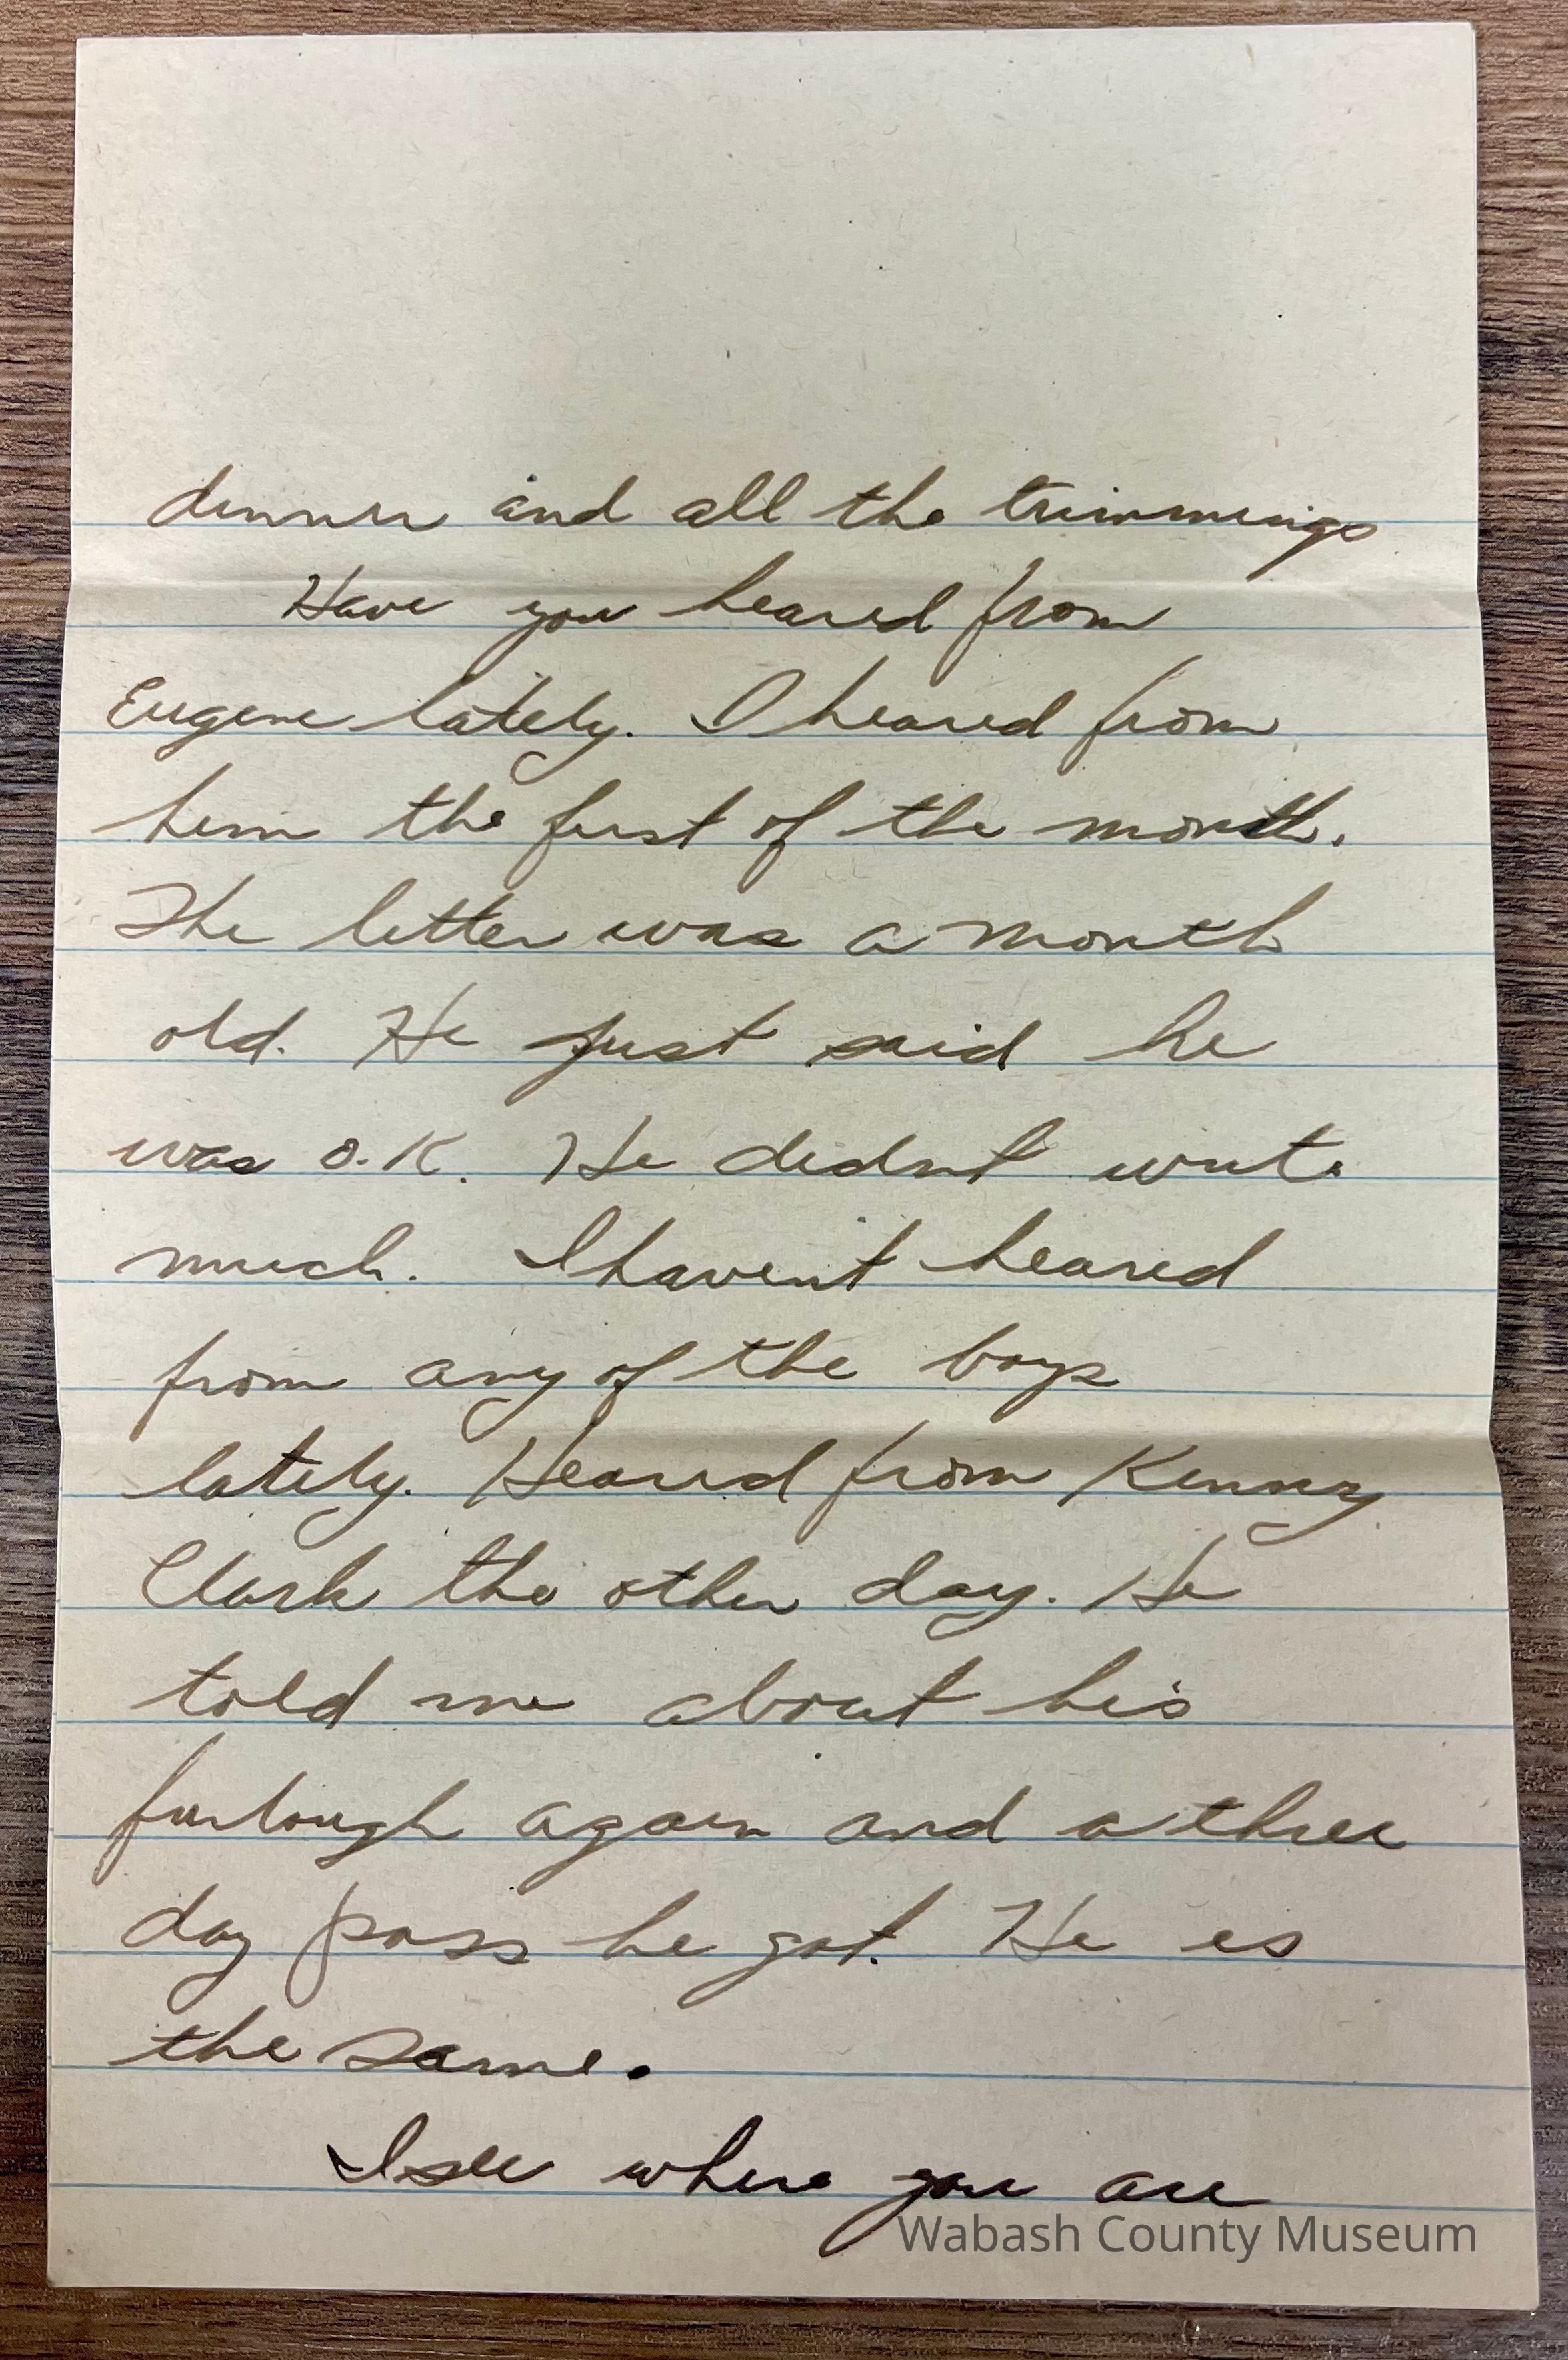 dinner and all the trimmings
Have you heared from
Eugene lately. I heared from
him the first of the month.
The letter was a month
old. He just said he
was O.K. He didnt write
much. I havent heared
from any of the boys
lately. Heared from Kenny
Clark the other day. He
told me about his
furlough again and a three
day pass he got. He is
the same.
I see where you are
Wabash County Museum